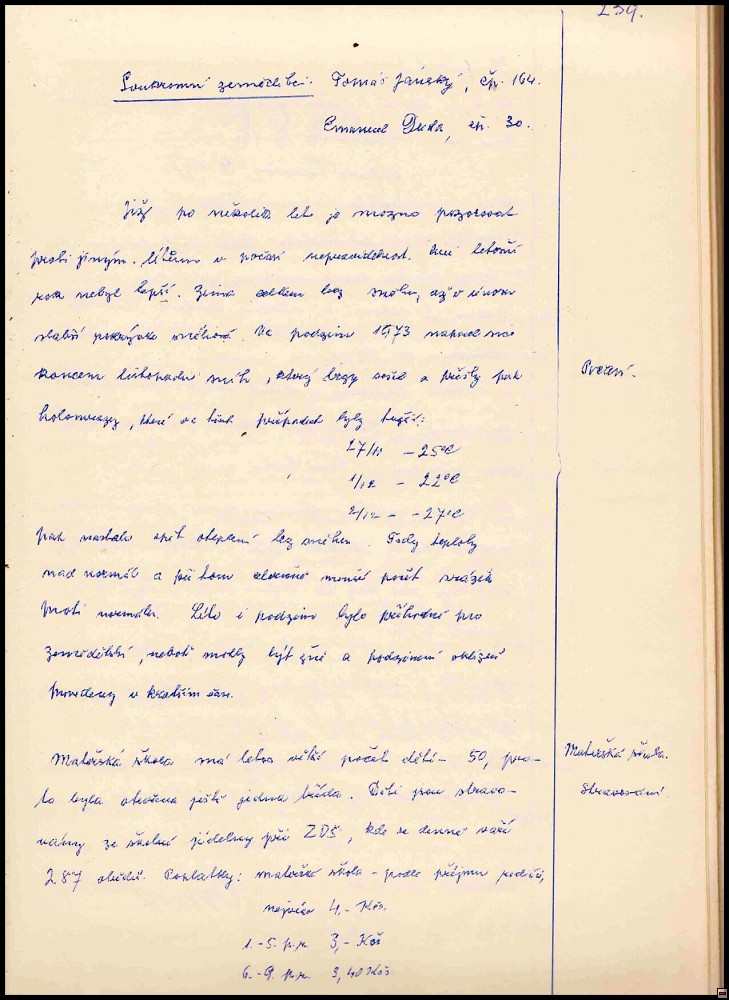 239.
Soukromí zemědělci: Tomáš Jánský, čp. 164.
Emanuel Duda, čp. 30.
Již po několik let je možno pozorovat
proti jiným létům v počasí nepravidelnost. Ani letošní
rok nebyl lepší. Zima celkem bez sněhu, až v únoru
slabší pokrývka sněhová. Na podzim 1973 napadl
koncem listopadu sníh, který brzy sešel a přišly pak
holomrazy, které ve třech případech byly tužší:
27/11 - 25°C
1/12 - 22°C
2/12 - - 27°C
pak nastalo opět oteplení bez sněhu. Tedy teploty
nad normál a při tom menší počet srážek
proti normálu. Léto i podzim bylo příhodné pro
zemědělství, neboť mohly být žně a podzimní sklizeň
provedeny v kratším čase.
Počasí.
Mateřská škola má letos větší počet dětí - 50, pro-
to byla otevřena ještě jedna třída. Děti jsou stravo-
vány ze školní jídelny při ZDŠ, kde se denně vaří
287 obědů. Poplatky: mateřská škola - podle příjmu rodičů,
nejvíce 4,- Kčs.
1.-5. p.r. 3,- Kčs
6.-9. p.r. 3,40 Kčs
Mateřská škola.
Stravování.